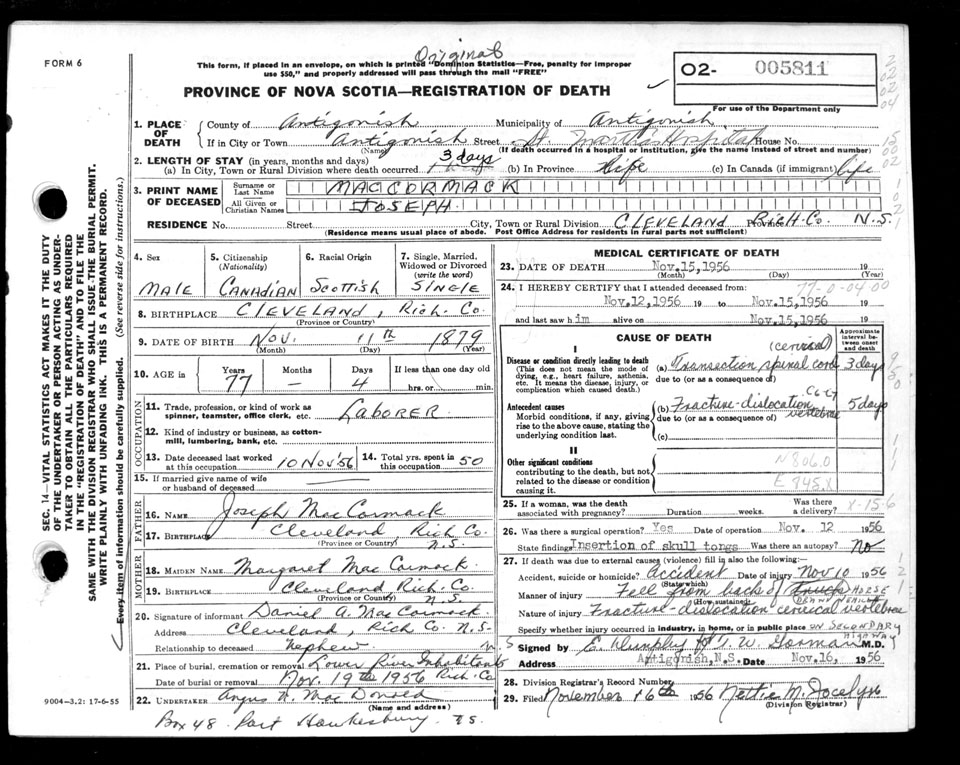 FORM 6
Original
This form, if placed in an envelope, on which is printed "Dominion Statistics—Free, penalty for improper
use $50," and properly addressed will pass through the mail "FREE"
O2- 005811
For use of the Department only
PROVINCE OF NOVA SCOTIA—REGISTRATION OF DEATH
1. PLACE OF DEATH County of Antigonish Municipality of Antigonish
If in City or Town Antigonish Street St. Martha's Hospital House No.
(Name) (If death occurred in a hospital or institution, give the name instead of street and number)
2. LENGTH OF STAY (in years, months and days)
(a) In City, Town or Rural Division where death occurred 3 days (b) In Province life (c) In Canada (if immigrant) life
3. PRINT NAME OF DECEASED Surname or Last Name MACCORMACK
All Given or Christian Names JOSEPH
RESIDENCE No. Street City, Town or Rural Division CLEVELAND Province RICH. Co. N.S.
(Residence means usual place of abode. Post Office Address for residents in rural parts not sufficient)
4. Sex MALE
5. Citizenship (Nationality) CANADIAN
6. Racial Origin SCOTTISH
7. Single, Married, Widowed or Divorced (write the word) SINGLE
8. BIRTHPLACE CLEVELAND, RICH. Co.
(Province or Country)
9. DATE OF BIRTH Nov. 11th 1879
(Month) (Day) (Year)
10. AGE in Years 77 Months — Days 4 If less than one day old hrs. or min.
OCCUPATION
11. Trade, profession, or kind of work as spinner, teamster, office clerk, etc. LABORER
12. Kind of industry or business, as cotton-mill, lumbering, bank, etc.
13. Date deceased last worked at this occupation 10 Nov '56 14. Total yrs. spent in this occupation 50
15. If married give name of wife or husband of deceased —
FATHER
16. NAME Joseph MacCormack
17. BIRTHPLACE Cleveland Rich Co. N.S.
(Province or Country)
MOTHER
18. MAIDEN NAME Margaret MacCormack
19. BIRTHPLACE Cleveland Rich. Co. N.S.
(Province or Country)
20. Signature of informant Daniel A. MacCormack
Address Cleveland, Rich Co. N.S.
Relationship to deceased nephew
21. Place of burial, cremation or removal Lower River Inhabitants Rich. Co N.S
Date of burial or removal Nov. 19th 1956
22. UNDERTAKER Angus W. MacDonald
(Name and address)
Box 48 Port Hawkesbury N.S.
9004-3.2: 17-6-55
MEDICAL CERTIFICATE OF DEATH
23. DATE OF DEATH Nov. 15, 1956 19
(Month) (Day) (Year)
24. I HEREBY CERTIFY that I attended deceased from:
77-0-04-00
Nov. 12, 1956 19 to Nov. 15, 1956 19
and last saw him alive on Nov. 15, 1956 19
CAUSE OF DEATH
Approximate interval between onset and death
I
Disease or condition directly leading to death
(This does not mean the mode of dying, e.g., heart failure, asthenia, etc. It means the disease, injury, or complication which caused death.)
(a) Transection spinal cord (cervical) 3 days
due to (or as a consequence of)
Antecedent causes
Morbid conditions, if any, giving rise to the above cause, stating the underlying condition last.
(b) Fracture-dislocation C6 C7 vertebrae 5 days
due to (or as a consequence of)
(c)
II
Other significant conditions
contributing to the death, but not related to the disease or condition causing it.
N806.0
E845.X
25. If a woman, was the death associated with pregnancy? Duration weeks. Was there a delivery?
X-15-6
26. Was there a surgical operation? Yes Date of operation Nov. 12 1956
State findings Insertion of skull tongs Was there an autopsy? No
27. If death was due to external causes (violence) fill in also the following:
Accident, suicide or homicide? accident Date of injury Nov 10 1956
(State which)
Manner of injury Fell from back of HORSE DRAWN VEHICLE
(How sustained)
Nature of injury Fracture-dislocation cervical vertebrae
Specify whether injury occurred in industry, in home, or in public place ON SECONDARY HIGHWAY
Signed by E. Dunphy for J. W. Gorman M.D.
Address Antigonish, N.S. Date Nov. 16, 1956
28. Division Registrar's Record Number
29. Filed November 16th 1956 Nettie M. Jocelyn
(Division Registrar)
SEC. 14—VITAL STATISTICS ACT MAKES IT THE DUTY
OF THE UNDERTAKER OR PERSON ACTING AS UNDER-
TAKER TO OBTAIN ALL THE PARTICULARS REQUIRED
IN THE "REGISTRATION OF DEATH" AND TO FILE THE
SAME WITH THE DIVISION REGISTRAR WHO SHALL ISSUE THE BURIAL PERMIT.
WRITE PLAINLY WITH UNFADING INK. THIS IS A PERMANENT RECORD.
Every item of information should be carefully supplied. (See reverse side for instructions.)